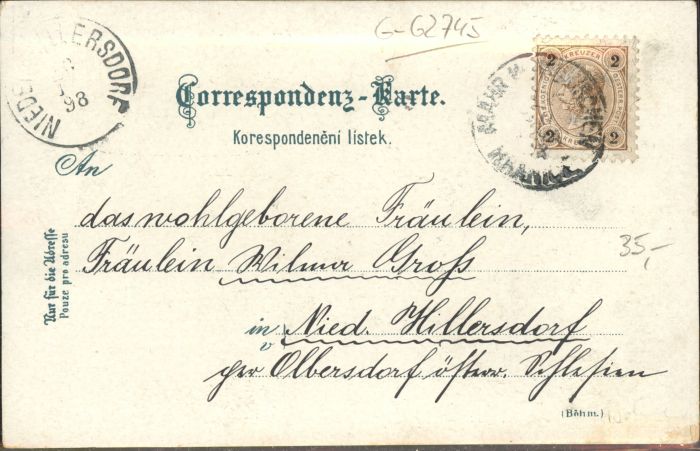 G-G2745
NIED HILLERSDORF
98
KREUZER
2 2
2 2
MÄHR
Correspondenz-Karte.
Korespondenční lístek.
An
das wohlgeborene Fräulein,
Fräulein Wilma Groß
35,-
Nur für die Adresse
Pouze pro adresu
in Nied. Hillersdorf
v
per Olbersdorf österr. Schlesien
(Böhm.)